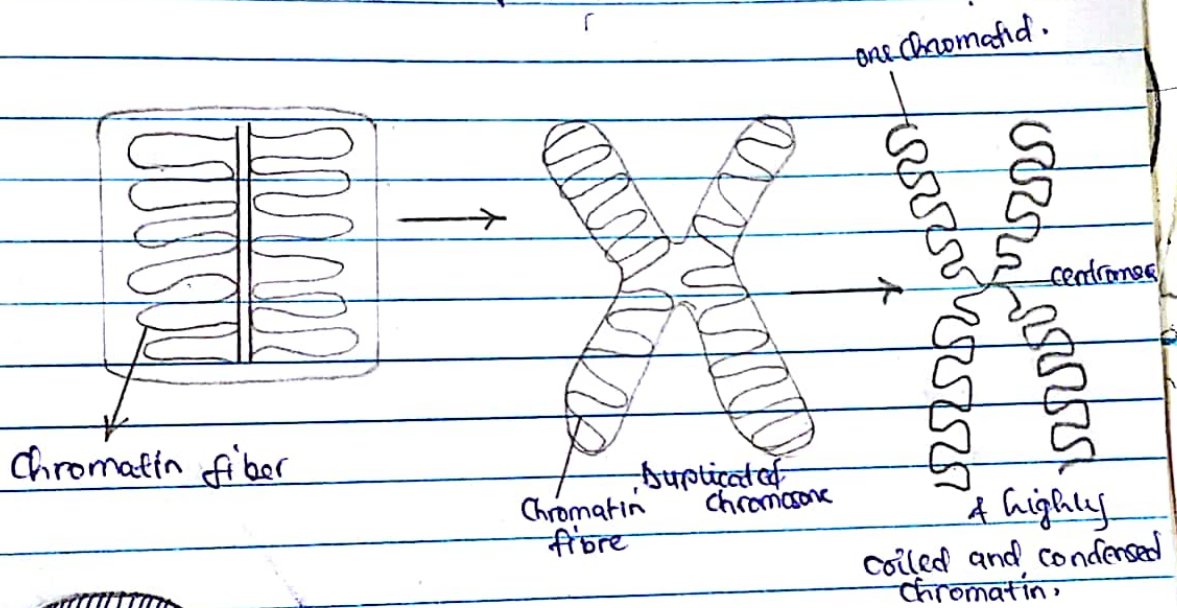 one Chromatid.
centromee
Chromatin fiber
Chromatin
fibre
Duplicated
Chromosone
A highly
coiled and condensed
Chromatin.